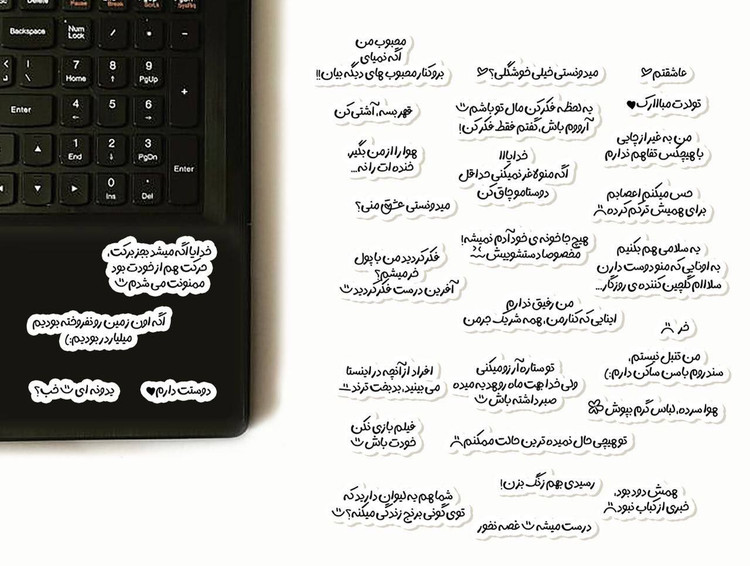 Pause
Break
SysRq
Backspace
Num
Lock
/
*
-
7
Home
8
9
PgUp
+
Enter
4
5
6
1
End
2
3
PgDn
Enter
0
Ins
.
Del
خدایا اگه میشد بجز برکت،
حرکت هم از خودت بود
ممنونت می شدم
اگه اون زمین رو نفروخته بودیم
میلیاردر بودیم:)
بدونه ای خب؟
دوستت دارم
محبوب من
اگه نمیای
برو کنار محبوب های دیگه بیان!!
میدونستی خیلی خوشگلی؟
عاشقتم
قهر بسه، آشتی کن
یه لحظه فکر کن مال تو باشم
آرووم باش، گفتم فقط فکر کن!
تولدت مباااارک
هوا را از من بگیر،
خنده ات را نه...
خدایااا
اگه منو لاغر نمیکنی حداقل
دوستامو چاق کن
من به غیر از چایی
با هیچکس تفاهم ندارم
میدونستی عشق منی؟
حس میکنم اعصابم
برای همیش ترکم کرده
فکر کردید من با پول
خر میشم؟
آفرین درست فکر کردید
هیچ جا خونه ی خود آدم نمیشه!
مخصوصا دستشوییش
یه سلامی هم بکنیم
به اونایی که منو دوست دارن
سلاااام گلچین کننده ی روزگار...
من رفیق ندارم
اینایی که کنارمن، همه شریک جرمن
خر
افراد از آنچه در اینستا
می بینید، بدبخت ترند
تو ستاره آرزو میکنی
ولی خدا جهت ماه رو بهد یه میده
صبر داشته باش
من تنبل نیستم،
سندروم باسن ساکن دارم:)
هوا سرده، لباس گرم بپوش
فیلم بازی نکن
خودت باش
تو هیچی حال نمیده ترین حالت ممکنم
شما هم یه لیوان دارید که
توی گونی برنج زندگی میکنه؟
رسیدی بهم زنگ بزن!
درست میشه غصه نخور
همش دود بود،
خبری از کباب نبود